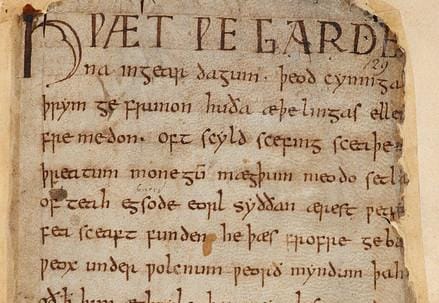 HǷÆT ǷE GARDE
na ingear dagum. þeod cyninga
þrym ge frunon huða æþelingas elle
fre medon. oft scyld scefing sceaþe
þreatum monegū mægþum meodo setla
of teah egsode eorl syððan ærest ƿear
fea sceaft funden he þæs frofre geba
ƿeox under ƿolcnum ƿeorð myndum þah
oðꝥ him